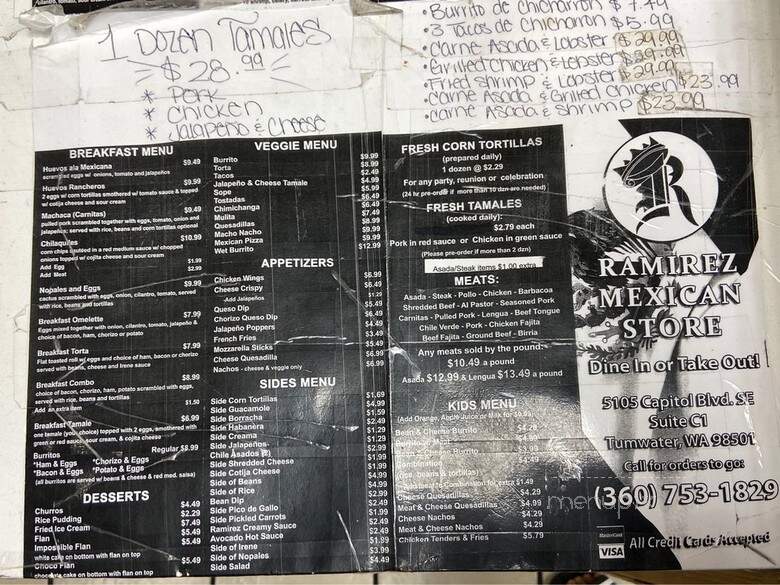 1 DOZEN Tamales
$28.99
* Pork
* Chicken
* Jalapeño & Cheese
• Burrito de chicharron $7.49
• 3 Tacos de chicharron $5.99
• Carne Asada & Lobster $29.99
• Grilled Chicken & Lobster $29.99
• Fried Shrimp & Lobster $29.99
• Carne Asada & Grilled Chicken $23.99
• Carne Asada & Shrimp $23.99
BREAKFAST MENU
Huevos ala Mexicana $9.49
scrambled eggs w/ onions, tomato and jalapeños
Huevos Rancheros $9.99
2 eggs w/ corn tortillas smothered w/ tomato sauce & topped
w/ cotija cheese and sour cream
Machaca (Carnitas) $9.49
pulled pork scrambled together with eggs, tomato, onion and
jalapeño; served with rice, beans and corn tortillas optional
Chilaquiles $10.99
corn chips sauteed in a red medium sauce w/ chopped
onions topped w/ cojita cheese and sour cream
Add Egg $1.99
Add Meat $2.99
Nopales and Eggs $9.99
cactus scrambled with eggs, onion, cilantro, tomato, served
with rice, beans and tortillas
Breakfast Omelette $7.99
Eggs mixed together with onion, cilantro, tomato, jalapeño &
choice of bacon, ham, chorizo or potato
Breakfast Torta $7.99
Flat toasted roll w/ eggs and choice of ham, bacon or chorizo
served with beans, cheese and Irene sauce
Breakfast Combo $8.99
choice of bacon, chorizo, ham, potato scrambled with eggs,
served with rice, beans and tortillas
Add an extra item $1.50
Breakfast Tamale $6.99
one tamale (your choice) topped with 2 eggs, smothered with
green or red sauce, sour cream, & cojita cheese
Burritos Regular $8.99
*Ham & Eggs *Chorizo & Eggs
*Bacon & Eggs *Potato & Eggs
(all burritos are served w/ beans & cheese & red med. salsa)
DESSERTS
Churros $4.49
Rice Pudding $2.29
Fried Ice Cream $7.49
Flan $5.49
Impossible Flan $5.49
white cake on bottom with flan on top
Choco Flan $5.49
chocolate cake on bottom with flan on top
VEGGIE MENU
Burrito $9.99
Torta $8.99
Tacos $2.49
Jalapeño & Cheese Tamale $4.99
Sope $5.99
Tostadas $6.49
Chimichanga $6.49
Mulita $7.49
Quesadillas $8.99
Macho Nacho $9.99
Mexican Pizza $9.99
Wet Burrito $12.99
APPETIZERS
Chicken Wings $6.99
Cheese Crispy $6.49
-Add Jalapeños $1.29
Queso Dip $5.49
Chorizo Queso Dip $6.49
Jalapeño Poppers $4.49
French Fries $3.49
Mozzarella Sticks $5.49
Cheese Quesadilla $6.99
Nachos - cheese & veggie only $6.99
SIDES MENU
Side Corn Tortillas $1.69
Side Guacamole $4.99
Side Borracha $2.99
Side Habanera $1.29
Side Creama $1.29
Side Jalapeños $2.99
Chile Asados (2) $1.99
Side Shredded Cheese $1.99
Side Cotija Cheese $1.99
Side of Beans $4.99
Side of Rice $4.99
Bean Dip $2.99
Side Pico de Gallo $1.99
Side Pickled Carrots $2.99
Ramirez Creamy Sauce $2.49
Avocado Hot Sauce $1.99
Side of Irene $1.99
Side of Nopales $3.99
Side Salad $4.49
FRESH CORN TORTILLAS
(prepared daily)
1 dozen @ $2.29
For any party, reunion or celebration
(24 hr pre-order if more than 10 dzn are needed)
FRESH TAMALES
(cooked daily):
$2.79 each
Pork in red sauce or Chicken in green sauce
(Please pre-order if more than 2 dzn)
Asada/Steak items $1.00 extra
MEATS:
Asada - Steak - Pollo - Chicken - Barbacoa
Shredded Beef - Al Pastor - Seasoned Pork
Carnitas - Pulled Pork - Lengua - Beef Tongue
Chile Verde - Pork - Chicken Fajita
Beef Fajita - Ground Beef - Birria
Any meats sold by the pound:
$10.49 a pound
Asada $12.99 & Lengua $13.49 a pound
KIDS MENU
(Add Orange, Apple Juice or Milk for
Bean & Cheese Burrito $4.29
Combination
(rice, beans & tortillas)
Cheese Quesadillas $4.29
Meat & Cheese Quesadillas $4.99
Cheese Nachos $4.29
Meat & Cheese Nachos $4.29
Chicken Tenders & Fries $5.79
R
RAMIREZ
MEXICAN
STORE
Dine In or Take Out!
5105 Capitol Blvd. SE
Suite C1
Tumwater, WA 98501
Call for orders to go:
(360) 753-1829
MasterCard
VISA
All Credit Cards Accepted